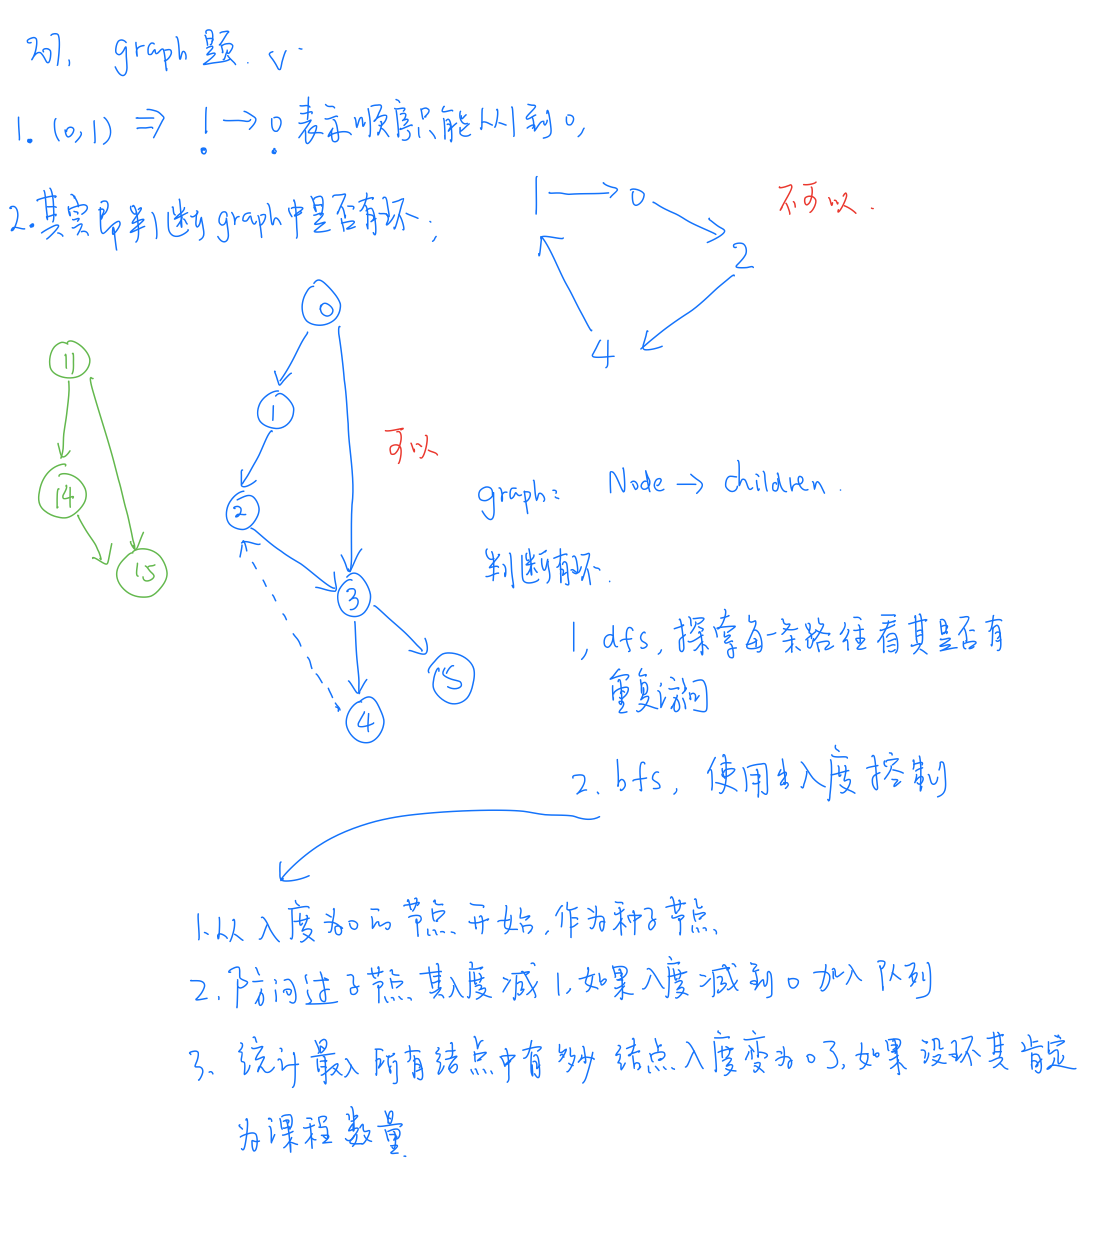 207. graph题.
1. (0,1) ⇒ 1 → 0 表示顺序只能从1到0,
2.其实即判断graph中是否有环;
1 0 2 4
不可以.
0
1
2
3
4
15
可以
11
14
15
graph: Node → children.
判断有环.
1, dfs, 探索每一条路径看其是否有
重复访问
2. bfs, 使用出入度控制
1.从入度为0的节点开始,作为种子节点
2.访问过子节点其入度减1,如果入度减到0加入队列
3. 统计最入所有结点中有多少结点入度变为0了,如果没环其肯定
为课程数量.